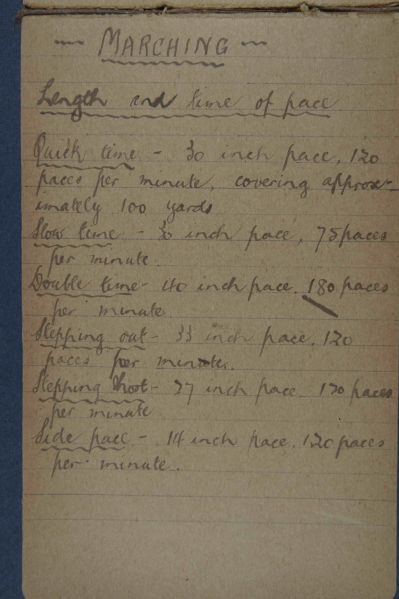 — MARCHING —
Length and time of pace
Quick time - 30 inch pace, 120
paces per minute, covering approx-
imately 100 yards
Slow time - 30 inch pace, 75 paces
per minute.
Double time - 40 inch pace. 180 paces
per minute.
Stepping out - 33 inch pace, 120
paces per minute.
Stepping short - 27 inch pace 120 paces
per minute
Side pace - 14 inch pace. 120 paces
per minute.